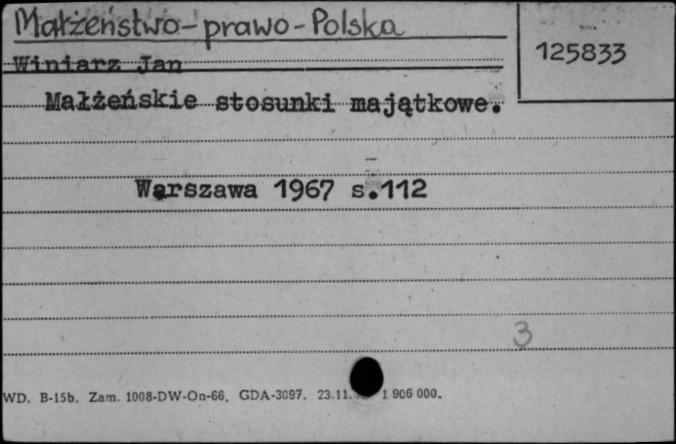 Małżeństwo-prawo-Polska
125833
Winiarz Jan
Małżeńskie stosunki majątkowe.
Warszawa 1967 s.112
3
WD. B-15b. Zam. 1008-DW-On-66. GDA-3097. 23.11. 1 906 000.